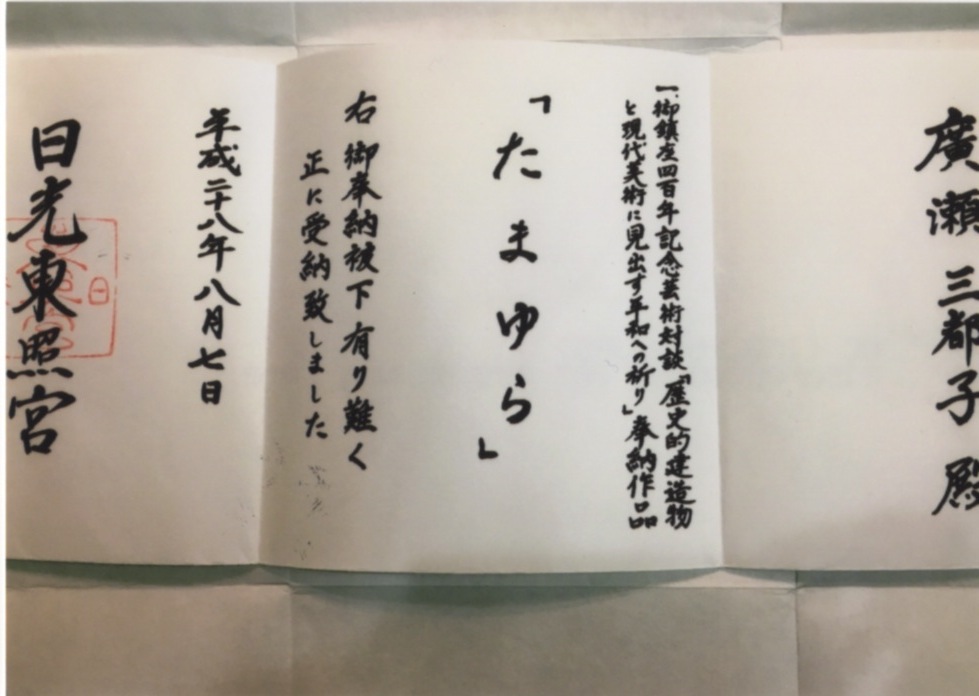 廣瀬三都子 殿
一、御鎮座四百年記念芸術対談「歴史的建造物
と現代美術に見出す平和への祈り」奉納作品
「たまゆら」
右 御奉納被下有り難く
正に受納致しました
平成二十八年八月七日
日光東照宮